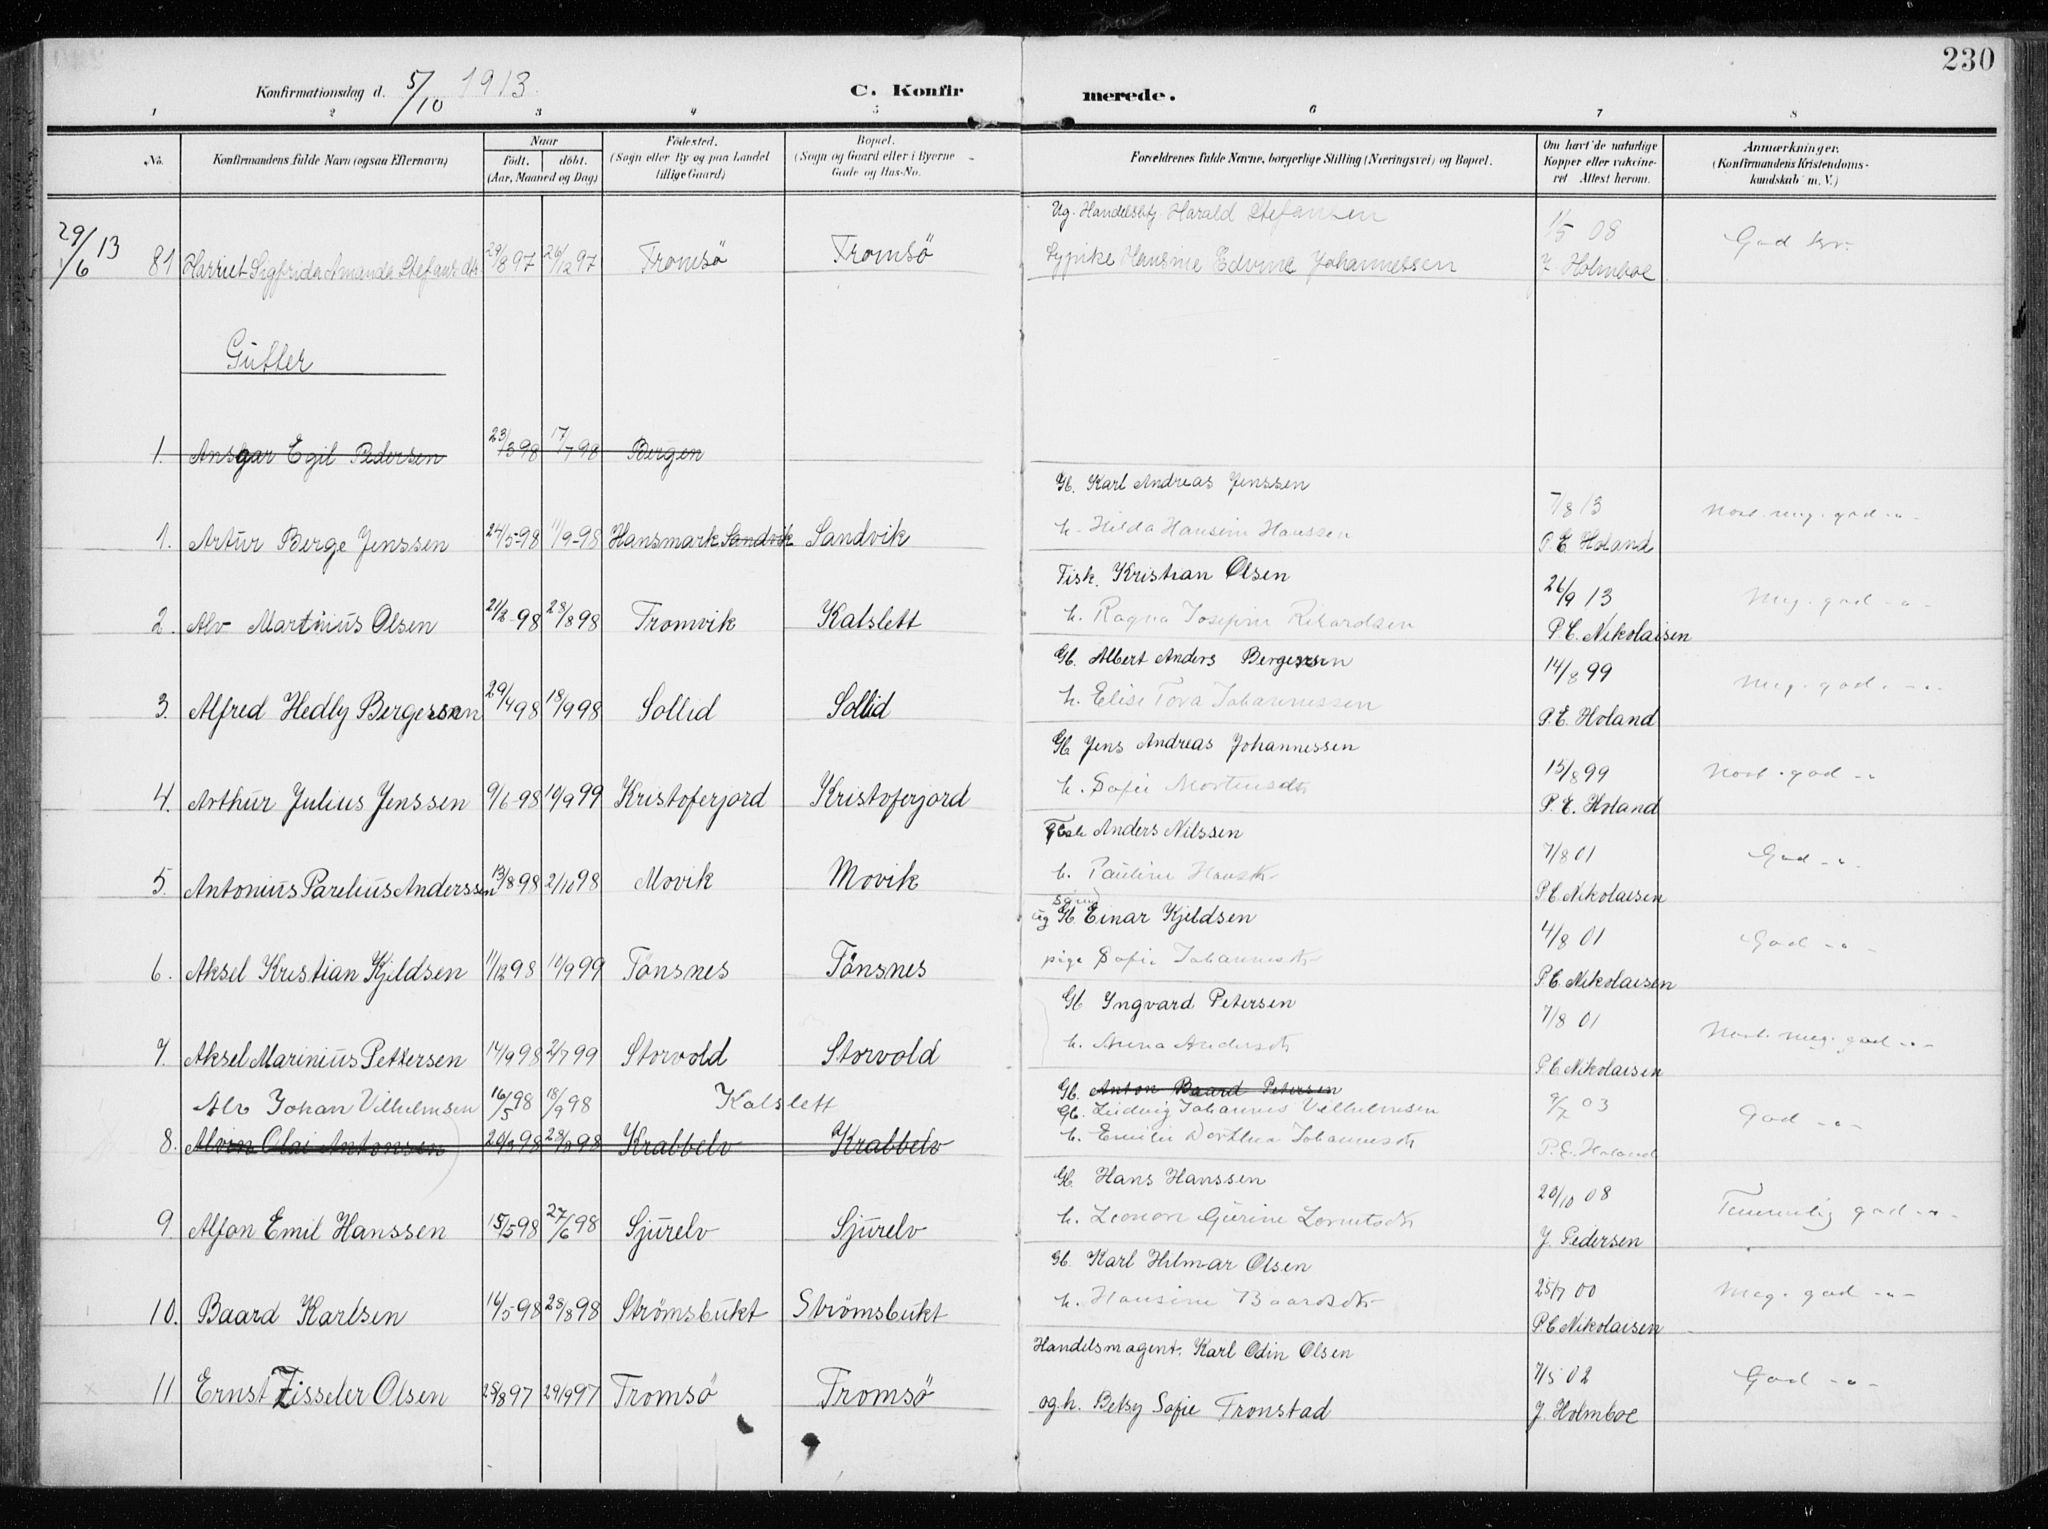 230
Konfirmationsdag d. 5/10 1913. C. Konfir merede.
1 2 3 4 5 6 7 8
No. Konfirmandens fulde Navn (ogsaa Efternavn) Naar født. døbt. (Aar, Maaned og Dag) Fødested. (Sogn eller By og paa Landet tillige Gaard) Bopæl. (Sogn og Gaard eller i Byerne Gade og Hus-No. Forældrenes fulde Navne, borgerlige Stilling (Næringsvei) og Bopæl. Om havt de naturlige Kopper eller vakcineret Attest herom. Anmærkninger. (Konfirmandens Kristendomskundskab m. V.)
Ug. Harald Stefansen 1/5 08
29/6 13 81 Harriet Sigfrida Amanda Stefansdtr 29/8 97 26/12 97 Tromsö Tromsö Sypike Hansine Edvine Johannessen J. Holmboe God
Gutter
1. Ansgar Egil Pedersen 23/3 98 17/7 98 Bergen
Gb. Karl Andreas Jenssen 7/8 13
1. Artur Berge Jenssen 24/5-98 11/9-98 Hansmark Sandvik Sandvik h. Hilda Hansine Hanssen P.E. Holand meg. god -"-
Fisk. Kristian Olsen 26/9 13
2. Alv Martinius Olsen 21/2-98 28/8 98 Tromvik Kalslett h. Ragna Josefine Rikardsen P.C. Nikolaisen Meg. god -"-
Gb. Albert Anders Bergersen 14/8 99
3. Alfred Hedly Bergersen 29/4 98 18/9 98 Sollid Sollid h. Elise Tova Johannessen P.E. Holand Meg. god. -"-
Gb Jens Andreas Johannessen 15/8 99
4. Arthur Julius Jenssen 9/6-98 10/9 99 Kristoferjord Kristoferjord h. Sofie Mortensdtr P.E. Holand god -"-
Anders Nilssen 7/8 01
5. Antonius Parelius Anderssen 13/8 98 2/10 98 Movik Movik h. Pauline Hansdtr P.C. Nikolaisen God -"-
ug Gb Einar Kjeldsen 4/8 01
6. Aksel Kristian Kjeldsen 11/12 98 10/9 99 Tönsnes Tönsnes pige Sofie Johannesdtr P.C. Nikolaisen God -"-
Gb Yngvard Petersen 7/8 01
7. Aksel Marinius Pettersen 14/9 98 2/7 99 Storvold Storvold h. Anna Andersdtr P.C. Nikolaisen meg. god -"-
Gb. Anton Baard Petersen
Alv Johan Vilhelmsen 16/5 98 18/9 98 Kalslett Gb. Ludvig Johannes Vilhelmsen 9/7 03
8. Alvin Olai Antonsen 20/3 98 28/8 98 Krabbelv Krabbelv h. Emilie Dorthea Johannesdtr P.E. Holand God -"-
Gb. Hans Hanssen 20/10 08
9. Alfon Emil Hanssen 15/5 98 27/6 98 Sjurelv Sjurelv h. Leonore Gurine Lorentsdtr J. Pedersen Temmelig god -"-
Gb. Karl Hilmar Olsen 25/7 00
10. Baard Karlsen 16/5-98 28/8 98 Strömsbukt Strömsbukt h. Hansine Baardsdtr P.C. Nikolaisen Meg. god -"-
Handelsmagent. Karl Odin Olsen 7/5 02
11 Ernst Zisseler Olsen 28/8 97 29/9 97 Tromsö Tromsö og h. Betsy Sofie Tronstad J. Holmboe God -"-